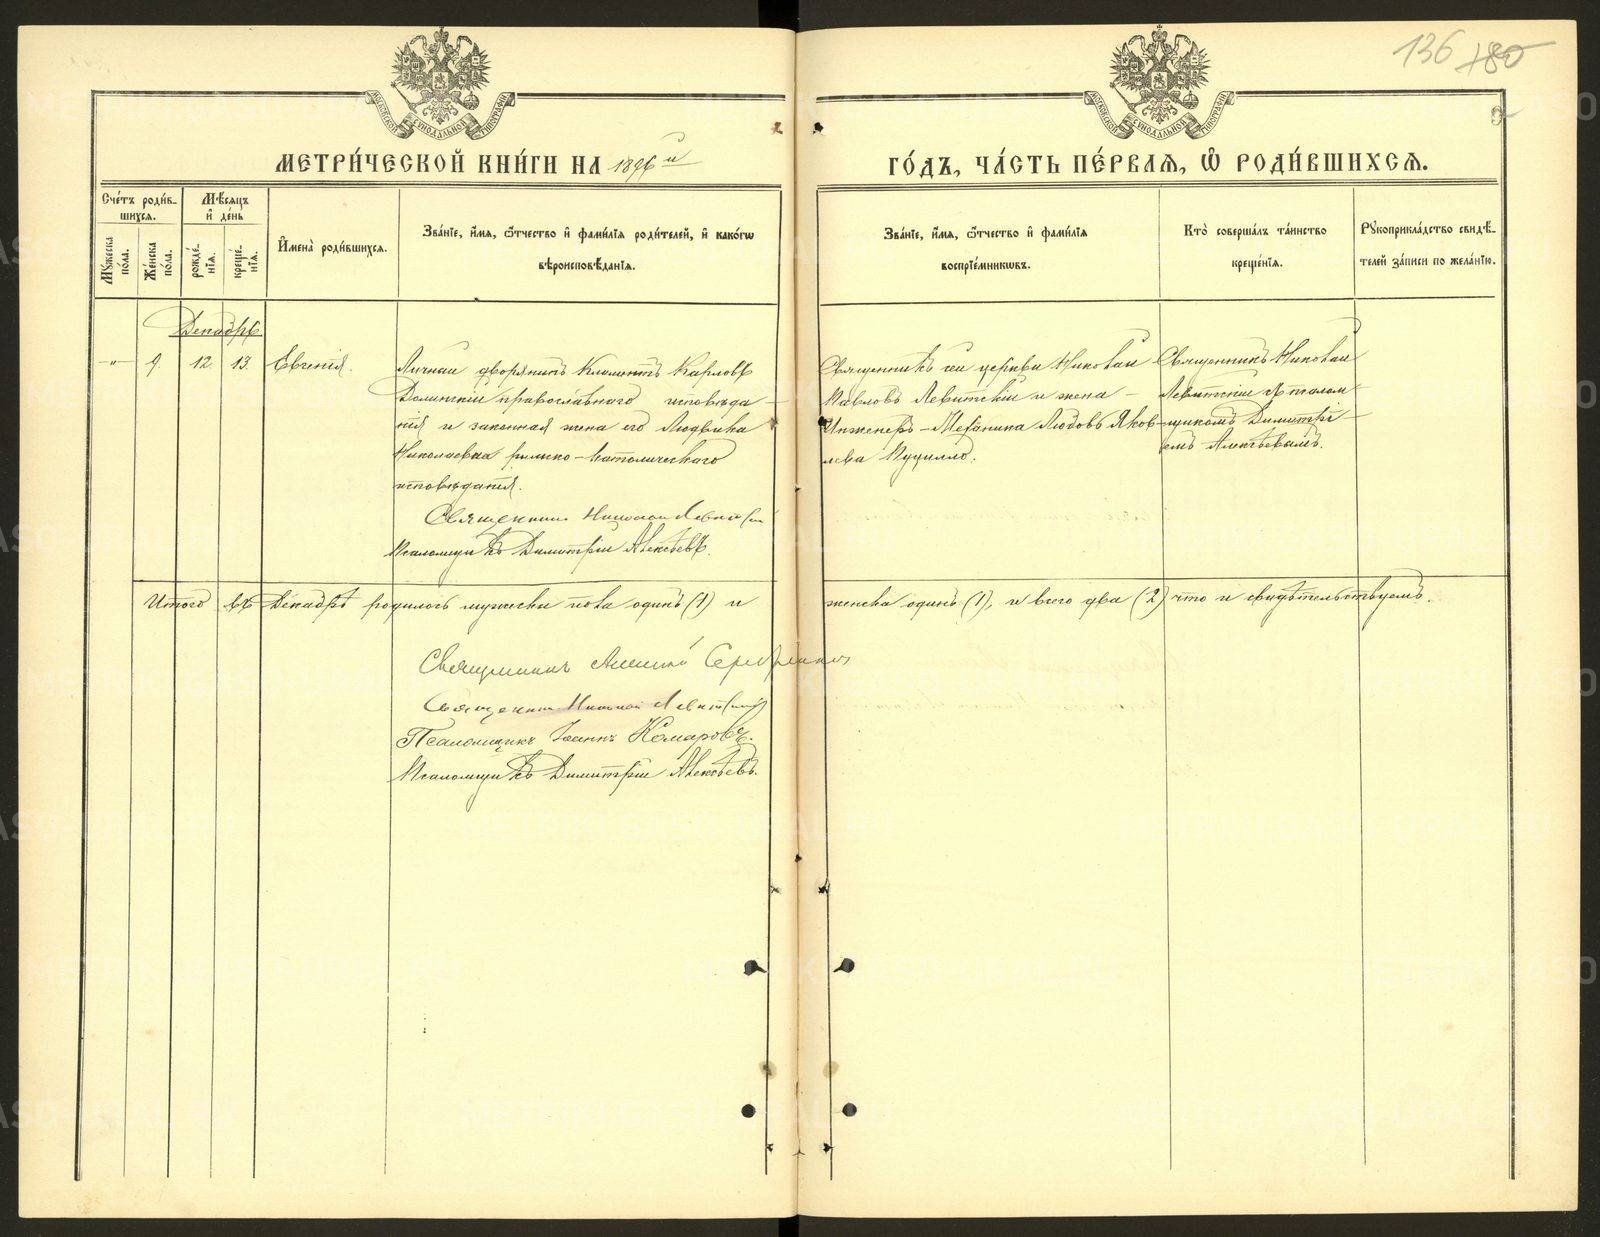 136 180
МЕТРИ́ЧЕСКОЙ КНИ́ГИ НА 1896 й
ГО́ДЪ, ЧА́СТЬ ПЕ́РВАЯ, Ѡ РОДИ́ВШИХСЯ.
Сче́тъ роди́в-
шихся.
Му́жеска по́ла.
Же́нска по́ла.
Мѣ́сяцъ
и де́нь
рожде́-
нія.
креще́-
нія.
Имена̀ роди́вшихся.
Зва́ніе, и́мя, ѻ́тчество и фами́лія роди́телей, и како́гѡ
вѣроисповѣ́данія.
Зва́ніе, и́мя, ѻ́тчество и фами́лія
воспріе́мникѡвъ.
Кто̀ соверша́лъ та́инство
креще́нія.
Рꙋкоприкла́дство свидѣ́-
телей за́писи по жела́нію.
Декабрь
-"- 9. 12. 13. Евгенія.
Личный дворянинъ Климентъ Карловъ
Долинскій православнаго исповѣда-
нія и законная жена его Людвика
Николаевна римско-католическаго
исповѣданія.
Священникъ Николай Левитскій
Псаломщикъ Димитрій Алексѣевъ.
Священникъ сей церкви Николай
Павловъ Левитскій и жена
Инженеръ-Механика Любовь Яков-
лева
Священникъ Николай
Левитскій съ псалом-
щикомъ Димитрі-
емъ Алексѣевымъ.
Итого въ Декабрѣ родилось мужеска пола одинъ (1) и женска одинъ (1), и всего два (2) что и свидѣтельствуемъ.
Священникъ Алексій
Священникъ Николай Левитскій
Псаломщикъ Іоаннъ Комаровъ.
Псаломщикъ Димитрій Алексѣевъ.